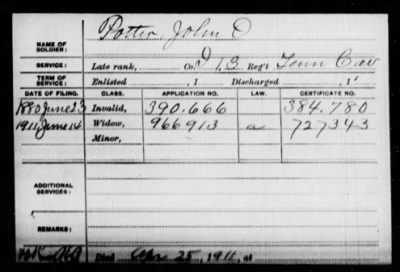 Potter, John D
NAME OF SOLDIER:
SERVICE: Late rank, Co. D 13 Reg't Tenn Cav
TERM OF SERVICE: Enlisted , 1 Discharged , 1
DATE OF FILING. CLASS. APPLICATION NO. LAW. CERTIFICATE NO.
1880 June 23 Invalid, 390.666 384.780
1911 June 14 Widow, 966913 a 727343
Minor,
ADDITIONAL SERVICES:
REMARKS:
Died Apr 25, 1911, at